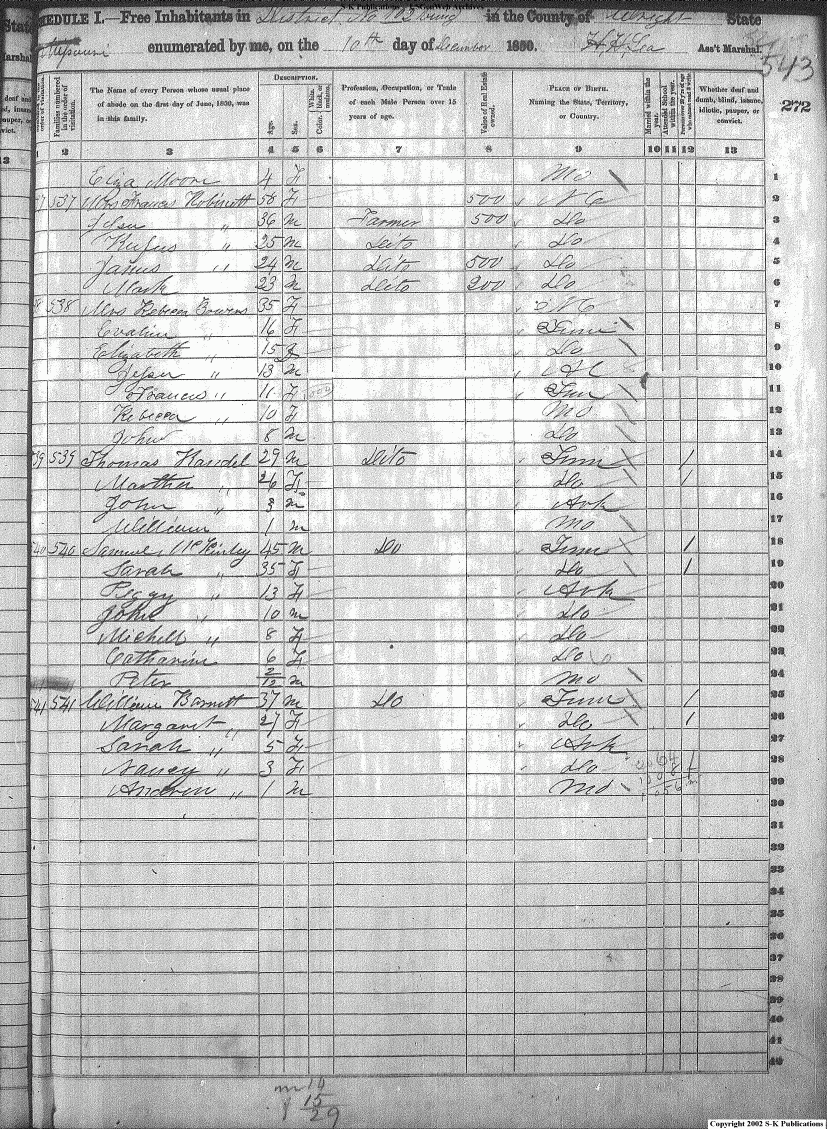 S-K Publications - USGenWeb Archives
SCHEDULE I.—Free Inhabitants in District No in the County of Wright State
of Missouri enumerated by me, on the 10th day of December 1850. H. H. Lea Ass't Marshal.
543
272
The Name of every Person whose usual place of abode on the first day of June, 1850, was in this family.
DESCRIPTION.
Age.
Sex.
White, black, or mulatto.
Profession, Occupation, or Trade of each Male Person over 15 years of age.
Value of Real Estate owned.
PLACE OF BIRTH. Naming the State, Territory, or Country.
Married within the year.
Attended School within the year.
Whether deaf and dumb, blind, insane, idiotic, pauper, or convict.
1 2 3 4 5 6 7 8 9 10 11 12 13
Eliza Moore 4 F Mo 1
537 Mrs Frances Robinett 56 F 500 N C 2
Jesse " 36 M Farmer 500 Do 3
Rufus " 25 M Deito Do 4
James " 24 M Deito 500 Do 5
Mark 23 M Deito 200 Do 6
538 Mrs Rebecca Bowers 35 F N C 7
Evaline " 16 F Tenn 8
Elizabeth " 15 F Do 9
Jesse " 13 M 10
Frances " 11 F Tenn 11
Rebecca " 10 F Mo 12
John 8 M Do 13
539 539 Thomas Handel 29 M Deito Tenn 1 14
Marthia " 26 F Do 1 15
John " 3 M Ark 16
William 1 M Mo 17
540 540 Samuel McKinley 45 M Do Tenn 1 18
Sarah " 35 F Do 1 19
Peggy " 13 F Ark 20
John " 10 M Do 21
Michell " 8 F Do 22
Catharine 6 F Do 23
Peter 2/12 M Mo 24
541 541 William Barnett 37 M Do Tenn 1 25
Margaret " 27 F Do 1 26
Sarah " 5 F Ark 27
Nancy " 3 F Do 28
Andrew " 1 M Mo 29
30
31
32
33
34
35
36
37
38
39
40
41
42
m 14
F 15
29
Copyright 2002 S-K Publications